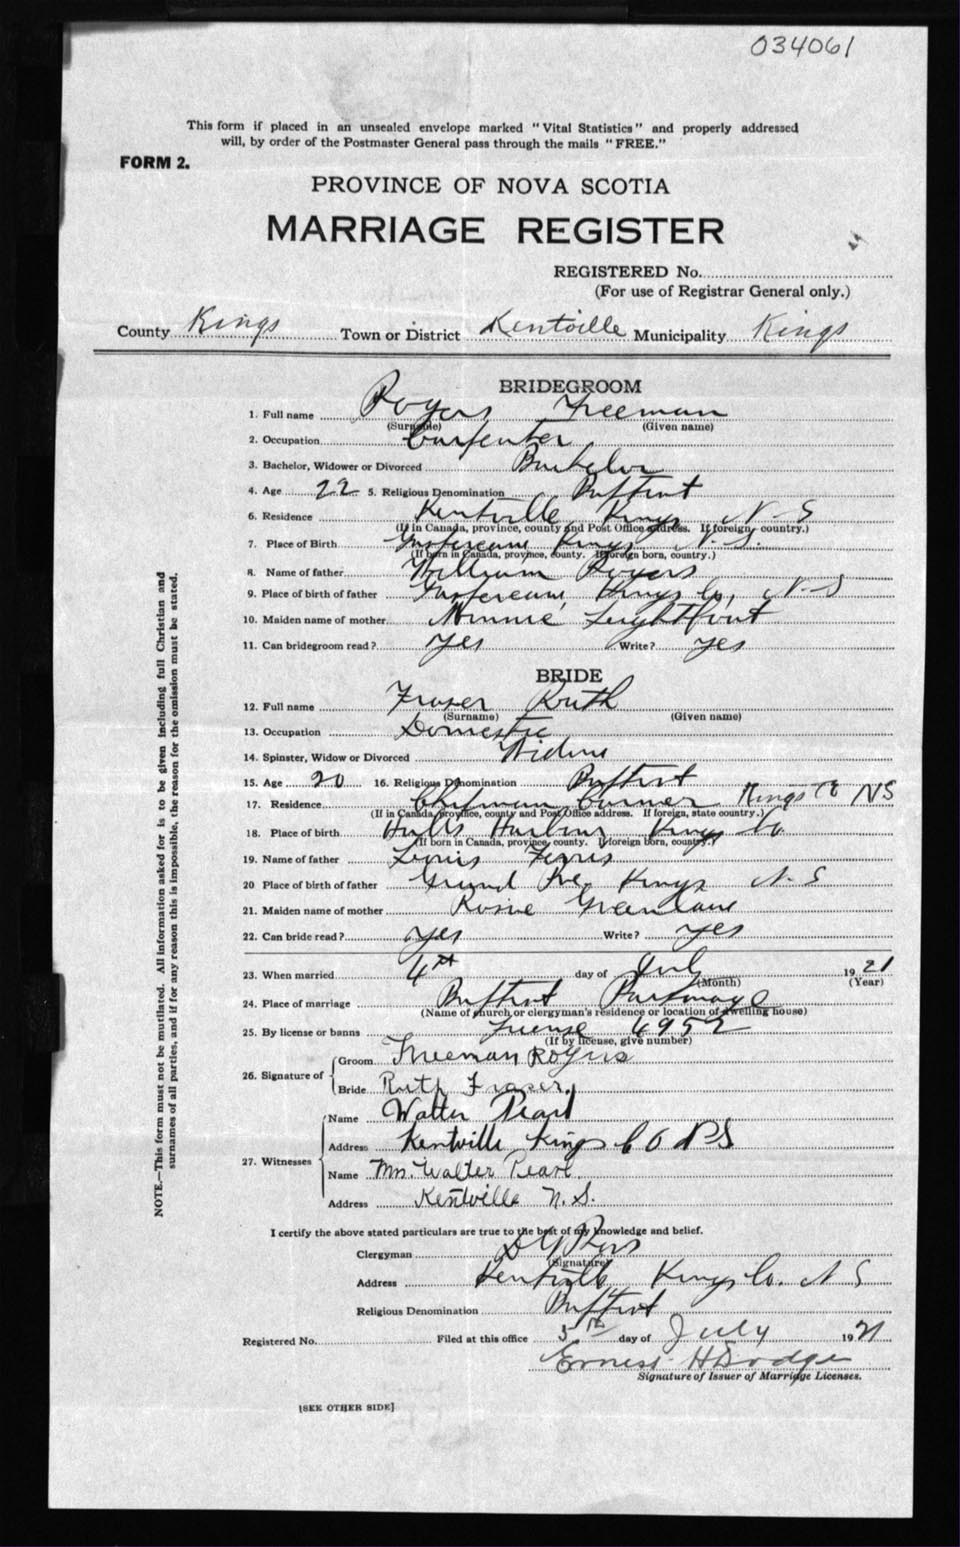 034061
This form if placed in an unsealed envelope marked "Vital Statistics" and properly addressed
will, by order of the Postmaster General pass through the mails "FREE."
FORM 2.
PROVINCE OF NOVA SCOTIA
MARRIAGE REGISTER
REGISTERED No.
(For use of Registrar General only.)
County Kings Town or District Kentville Municipality Kings
BRIDEGROOM
1. Full name Rogers Freeman
(Surname) (Given name)
2. Occupation Carpenter
3. Bachelor, Widower or Divorced Bachelor
4. Age 22 5. Religious Denomination Baptist
6. Residence Kentville Kings N-S
(If in Canada, province, county and Post Office address. If foreign, country.)
7. Place of Birth Kings N.S.
(If born in Canada, province, county. If foreign born, country.)
8. Name of father William Rogers
9. Place of birth of father Kings Co, N-S
10. Maiden name of mother Minnie Lightfoot
11. Can bridegroom read? Yes Write? Yes
BRIDE
12. Full name Fraser Ruth
(Surname) (Given name)
13. Occupation Domestic
14. Spinster, Widow or Divorced Widow
15. Age 20 16. Religious Denomination Baptist
17. Residence Chipman Corner Kings Co NS
(If in Canada, province, county and Post Office address. If foreign, state country.)
18. Place of birth Halls Harbour Kings Co
(If born in Canada, province, county. If foreign born, country.)
19. Name of father Louis
20 Place of birth of father Grand Pre, Kings N-S
21. Maiden name of mother Rosie
22. Can bride read? Yes Write? Yes
23. When married 4th day of July 1921
(Month) (Year)
24. Place of marriage Baptist Parsonage
(Name of church or clergyman's residence or location of dwelling house)
25. By license or banns License 6952
(If by license, give number)
26. Signature of Groom Freeman Rogers
Bride Ruth Fraser
27. Witnesses Name Walter Pearl
Address Kentville Kings Co NS
Name Mrs. Walter Pearl
Address Kentville N.S.
I certify the above stated particulars are true to the best of my knowledge and belief.
Clergyman
(Signature)
Address Kentville Kings Co. N S
Religious Denomination Baptist
Registered No. Filed at this office 5th day of July 1921
Ernest H Dodge
Signature of Issuer of Marriage Licenses.
[SEE OTHER SIDE]
NOTE.—This form must not be mutilated. All information asked for is to be given including full Christian and
surnames of all parties, and if for any reason this is impossible, the reason for the omission must be stated.